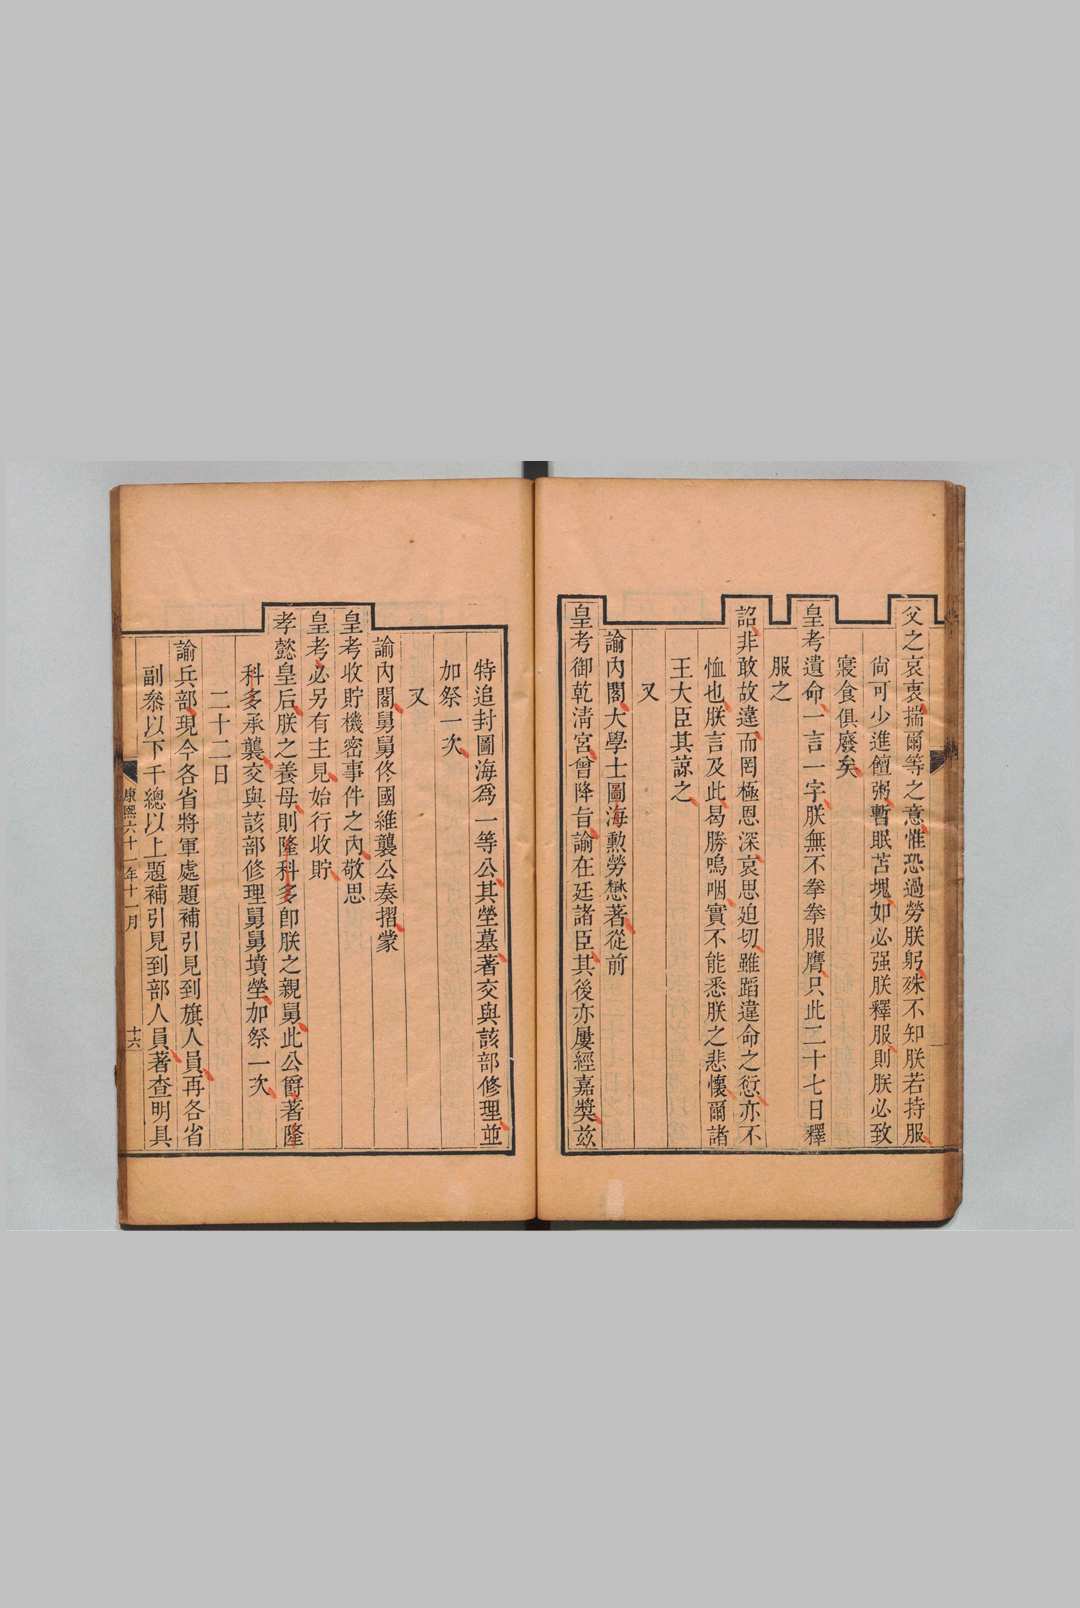 父之哀衷揣爾等之意惟恐過勞朕躬殊不知朕若持服
尚可少進饘粥暫眠苫塊如必强朕釋服則朕必致
寢食俱廢矣
皇考遺命一言一字朕無不拳拳服膺只此二十七日釋
服之
詔非敢故違而罔極恩深哀思迫切雖蹈違命之愆亦不
恤也朕言及此曷勝嗚咽實不能悉朕之悲懷爾諸
王大臣其諒之
又
諭內閣大學士圖海勲勞懋著從前
皇考御乾淸宮曾降旨諭在廷諸臣其後亦屢經嘉奬兹
特追封圖海爲一等公其塋墓著交與該部修理並
加祭一次
又
諭內閣舅舅佟國維襲公奏摺蒙
皇考收貯機密事件之內敬思
皇考必另有主見始行收貯
孝懿皇后朕之養母則隆科多卽朕之親舅此公爵著隆
科多承襲交與該部修理舅舅墳塋加祭一次
二十二日
諭兵部現今各省將軍處題補引見到旗人員再各省
副叅以下千總以上題補引見到部人員著查明具
康熙六十一年十一月
十六